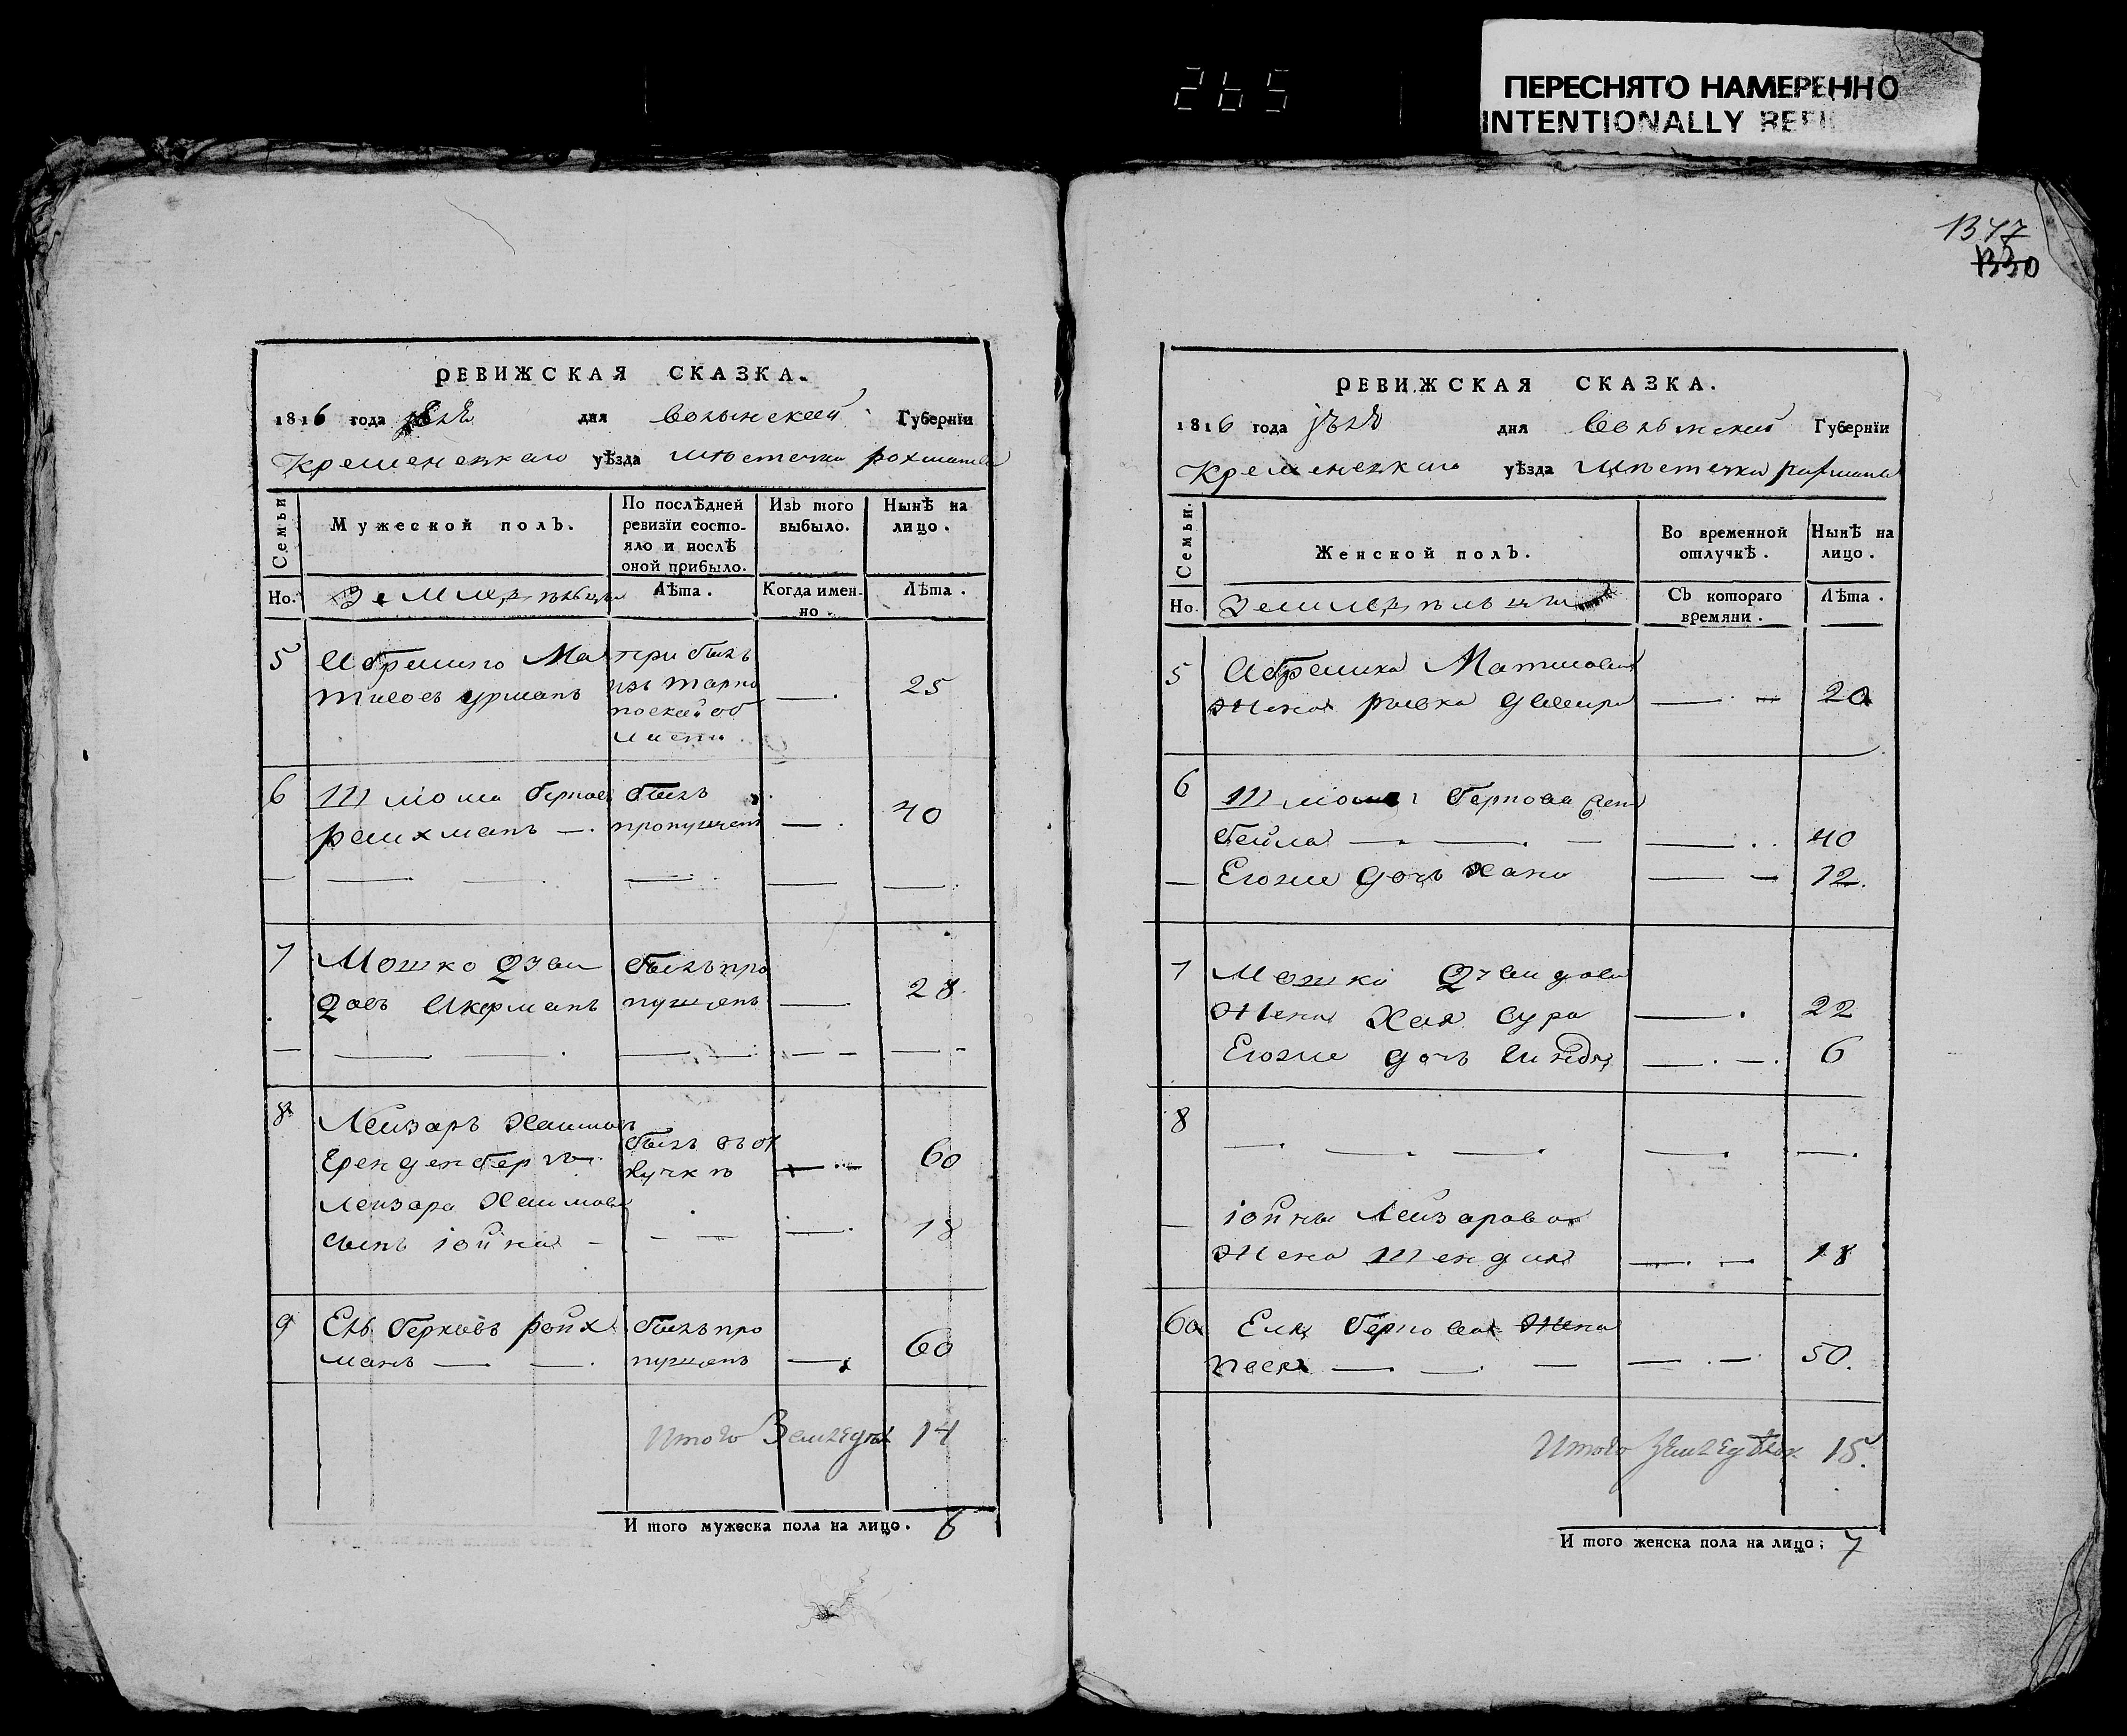 265
ПЕРЕСНЯТО НАМЕРЕННО
INTENTIONALLY REFI
1347
1330
РЕВИЖСКАЯ СКАЗКА.
1816 года дня волынской Губернїи
Кременецкаго уѣзда мѣстечка рохманова
Семьи
Мужеской полъ.
По послѣдней ревизїи состо-
яло и послѣ
оной прибыло.
Изъ того выбыло.
Нынѣ на лицо.
Но.
Земледѣльцы
Лѣта.
Когда имен-
но.
Лѣта.
5 Абрамко Ма при былъ
тиовъ урманъ изъ тарно
польской об 25
ласти
6 Шмома берков былъ
рейхманъ пропущенъ 40
7 Мошко Дзви былъ про
довъ Акерманъ пущенъ 28
8 Лейзаръ Хаимовъ
Гренденбергъ былъ въ от
лучкѣ 60
Лейзара Хаимова
сынъ іойна 18
9 Ель берковъ рейх былъ про
манъ пущенъ 60
Итого Земледѣл 14
И того мужеска пола на лицо. 6
РЕВИЖСКАЯ СКАЗКА.
1816 года дня Волынской Губернїи
Кременецкаго уѣзда мѣстечка рахманова
Семьи.
Женской полъ.
Во временной
отлучкѣ.
Нынѣ на
лицо.
Но.
Земледѣльцы
Съ котораго
времяни.
Лѣта.
5 Абрамка Матиова
жена ривка двейра 20
6 Шмома беркова жена
бейла 40
Егоже дочь хана 12.
7 Мошка
жена Хая сура 22
Егоже дочь 6
8
іойны Лейзарова
жена Шендля 18
60 Еля беркова жена
песя 50.
Итого земледѣльок 15.
И того женска пола на лицо; 7